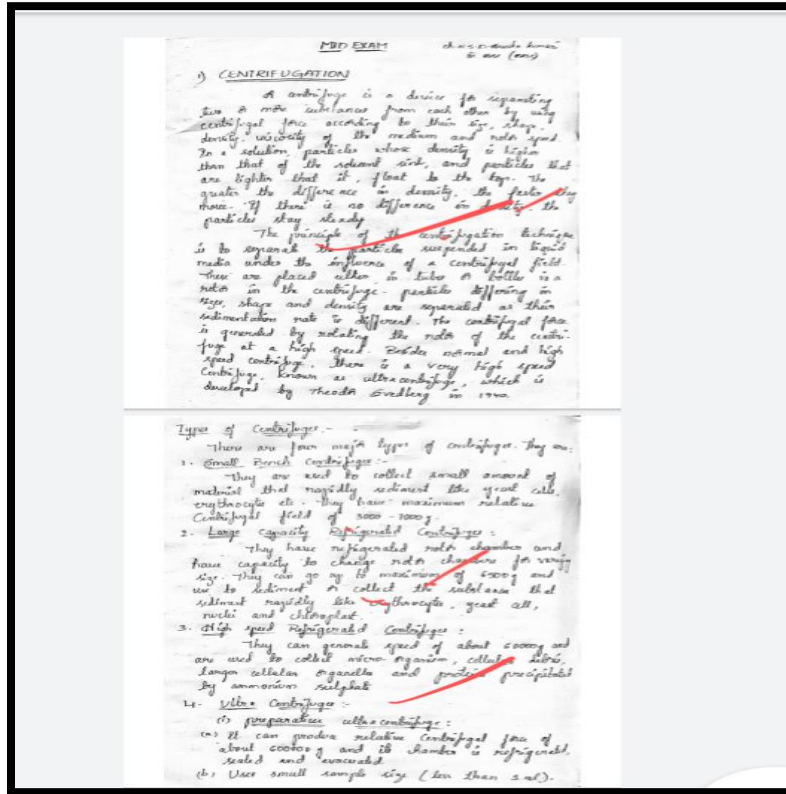 MID EXAM
1) CENTRIFUGATION
A centrifuge is a device for separating
two or more substances from each other by using
centrifugal force according to their size, shape,
density, viscosity of the medium and rotor speed.
In a solution, particles whose density is higher
than that of the solvent sink, and particles that
are lighter that it, float to the top. The
greater the difference in density, the faster they
move. If there is no difference in density, the
particles stay steady
The principle of the centrifugation technique
is to separate the particles suspended in liquid
media under the influence of a centrifugal field.
These are placed either in tubes or bottles in a
rotor in the centrifuge - particles differing in
sizes, shape and density are separated as their
sedimentation rate is different. The centrifugal force
is generated by rotating the rotor of the centri-
fuge at a high speed. Besides normal and high
speed centrifuge, there is a very high speed
Centrifuge, known as ultracentrifuge, which is
developed by Theodor Svedberg in 1940.
Types of Centrifuges :-
There are four major types of centrifuges. They are:
1. Small Bench Centrifuges :-
They are used to collect small amount of
material that rapidly sediment like yeast cells,
erythrocytes etc. They have maximum relative
Centrifugal field of 3000 - 7000g.
2. Large capacity Refrigerated Centrifuges :
They have refrigerated rotor chamber and
have capacity to change rotor chambers for varify
size. They can go up to maximum of 6500g and
use to sediment or collect the substance that
sediment rapidly like erythrocytes, yeast cell,
nuclei and chloroplast.
3. High speed Refrigerated Centrifuges :
They can generate speed of about 60000g and
are used to collect micro-organism, cellular debris,
larger cellular organelles and proteins precipitated
by ammonium sulphate
4. Ultra Centrifuges :-
(i) preparative ultracentrifuge :
(a) It can produce relative Centrifugal force of
about 600000g and its chamber is refrigerated,
sealed and evacuated.
(b) Uses small sample size (less than 5 ml).